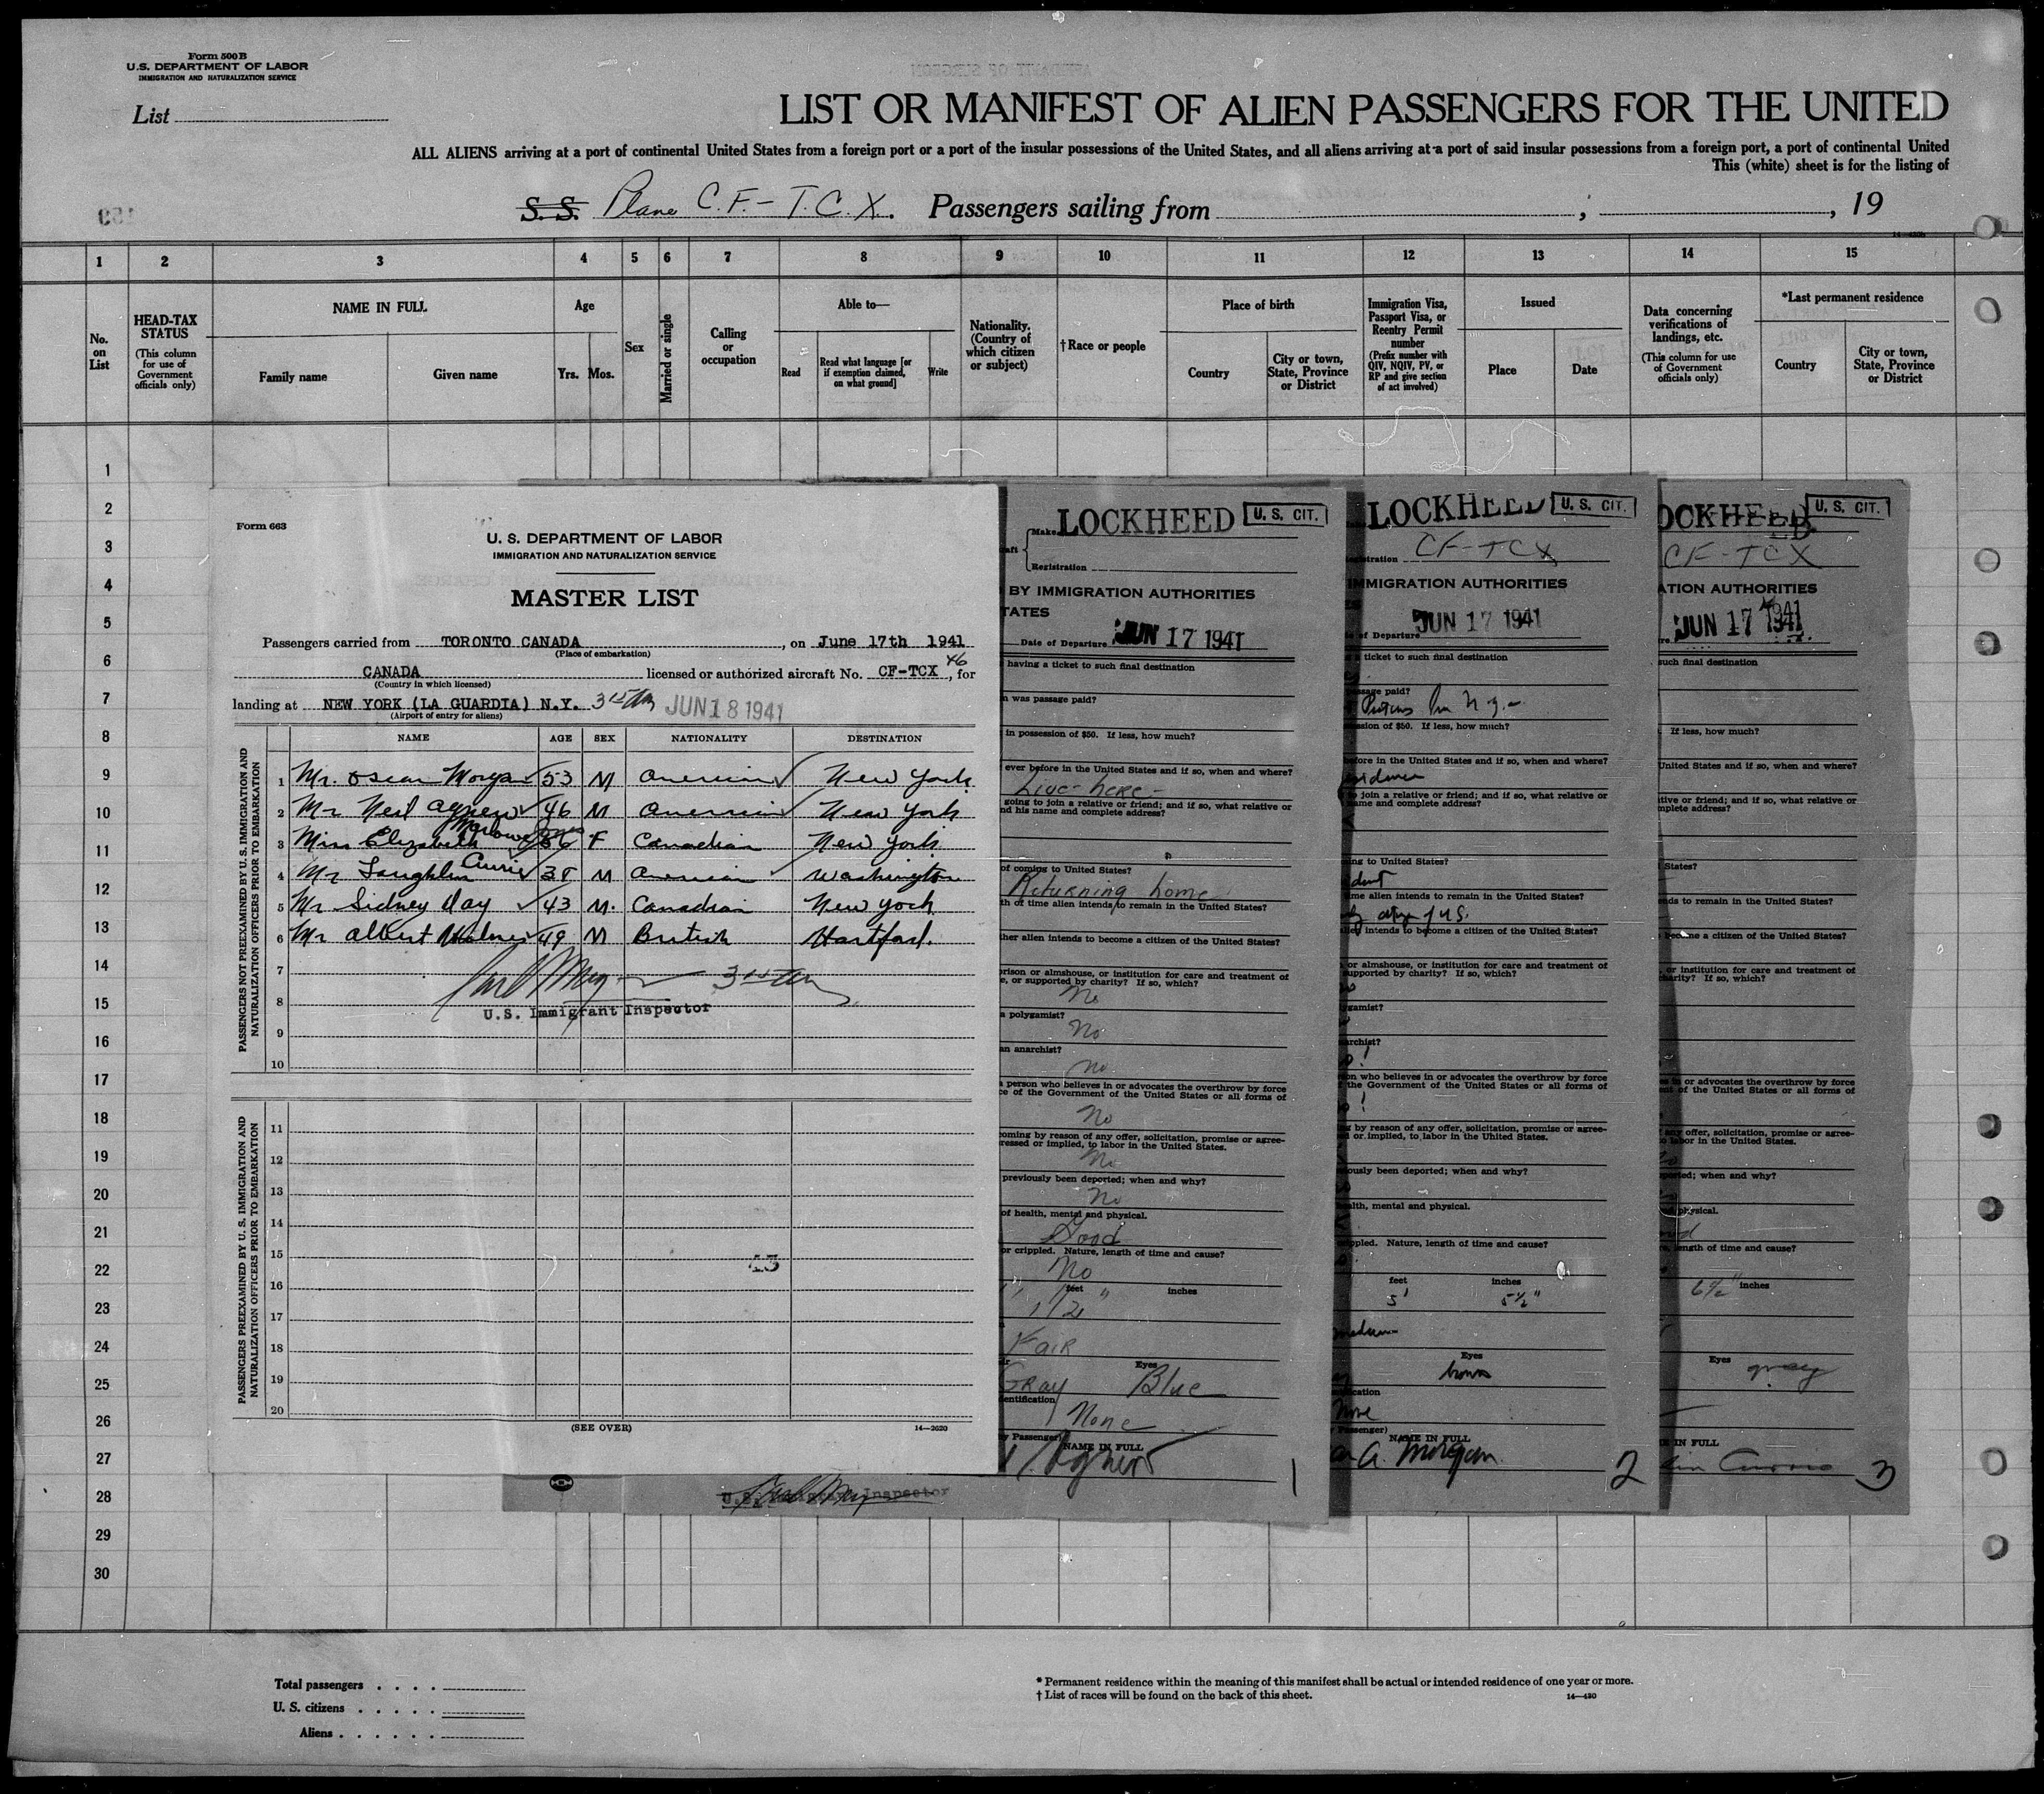 Form 500 B
U.S. DEPARTMENT OF LABOR
IMMIGRATION AND NATURALIZATION SERVICE
List
LIST OR MANIFEST OF ALIEN PASSENGERS FOR THE UNITED
ALL ALIENS arriving at a port of continental United States from a foreign port or a port of the insular possessions of the United States, and all aliens arriving at a port of said insular possessions from a foreign port, a port of continental United
This (white) sheet is for the listing of
S.S. Plane C.F.-T.C.X. Passengers sailing from , , 19
1 2 3 4 5 6 7 8 9 10 11 12 13 14 15
No. on List
HEAD-TAX STATUS
(This column for use of Government officials only)
NAME IN FULL
Family name
Given name
Age
Yrs. Mos.
Sex
Married or single
Calling or occupation
Able to—
Read
Read what language [or if exemption claimed, on what ground]
Write
Nationality. (Country of which citizen or subject)
†Race or people
Place of birth
Country
City or town, State, Province or District
Immigration Visa, Passport Visa, or Reentry Permit number
(Prefix number with QIV, NQIV, PV, or RP and give section of act involved)
Issued
Place
Date
Data concerning verifications of landings, etc.
(This column for use of Government officials only)
*Last permanent residence
Country
City or town, State, Province or District
1
2
3
4
5
6
7
8
9
10
11
12
13
14
15
16
17
18
19
20
21
22
23
24
25
26
27
28
29
30
Form 663
U. S. DEPARTMENT OF LABOR
IMMIGRATION AND NATURALIZATION SERVICE
MASTER LIST
Passengers carried from TORONTO CANADA , on June 17th 1941
(Place of embarkation)
CANADA licensed or authorized aircraft No. CF-TCX 46, for
(Country in which licensed)
landing at NEW YORK (LA GUARDIA) N.Y. JUN 18 1941
(Airport of entry for aliens)
NAME AGE SEX NATIONALITY DESTINATION
PASSENGERS NOT PREEXAMINED BY U. S. IMMIGRATION AND NATURALIZATION OFFICERS PRIOR TO EMBARKATION
1 Mr. Oscar Morgan 53 M American New York
2 Mr Neil Agnew 46 M American New York
3 Miss Elizabeth F Canadian New York
4 Mr Laughlin Currie 38 M American Washington
5 Mr Sidney Day 43 M. Canadian New York
6 Mr Albert Holmes 49 M British Hartford.
7
8
U.S. Immigrant Inspector
9
10
PASSENGERS PREEXAMINED BY U. S. IMMIGRATION AND NATURALIZATION OFFICERS PRIOR TO EMBARKATION
11
12
13
14
15
16
17
18
19
20
(SEE OVER)
14—2620
U.S. Immigrant Inspector
Make LOCKHEED U. S. CIT.
Registration
BY IMMIGRATION AUTHORITIES
TATES
Date of Departure JUN 17 1941
having a ticket to such final destination
was passage paid?
in possession of $50. If less, how much?
ever before in the United States and if so, when and where?
Live-here-
going to join a relative or friend; and if so, what relative or
nd his name and complete address?
of coming to United States?
Returning home
th of time alien intends to remain in the United States?
ther alien intends to become a citizen of the United States?
prison or almshouse, or institution for care and treatment of
e, or supported by charity? If so, which?
No
a polygamist?
No
an anarchist?
No
a person who believes in or advocates the overthrow by force
ce of the Government of the United States or all forms of
No
coming by reason of any offer, solicitation, promise or agree-
ressed or implied, to labor in the United States.
No
previously been deported; when and why?
No
of health, mental and physical.
Good
or crippled. Nature, length of time and cause?
No
feet inches
Fair
Eyes
Gray Blue
entification
None
y Passenger) NAME IN FULL
Agnew
1
LOCKHEED U. S. CIT.
gistration CF-TCX
IMMIGRATION AUTHORITIES
of Departure JUN 17 1941
a ticket to such final destination
passage paid?
ssion of $50. If less, how much?
efore in the United States and if so, when and where?
join a relative or friend; and if so, what relative or
name and complete address?
ng to United States?
ime alien intends to remain in the United States?
alien intends to become a citizen of the United States?
or almshouse, or institution for care and treatment of
supported by charity? If so, which?
ygamist?
archist?
on who believes in or advocates the overthrow by force
the Government of the United States or all forms of
g by reason of any offer, solicitation, promise or agree-
d or implied, to labor in the United States.
ously been deported; when and why?
alth, mental and physical.
rippled. Nature, length of time and cause?
feet inches
5' 5½"
medium
Eyes
brown
ication
None
Passenger) NAME IN FULL
A. Morgan
2
OCKHEED U. S. CIT.
CF-TCX
ATION AUTHORITIES
JUN 17 1941
such final destination
If less, how much?
United States and if so, when and where?
ative or friend; and if so, what relative or
mplete address?
States?
nds to remain in the United States?
become a citizen of the United States?
or institution for care and treatment of
harity? If so, which?
es in or advocates the overthrow by force
ent of the United States or all forms of
any offer, solicitation, promise or agree-
to labor in the United States.
ported; when and why?
physical.
length of time and cause?
6½" inches
Eyes gray
E IN FULL
Currie
3
Total passengers
U. S. citizens
Aliens
* Permanent residence within the meaning of this manifest shall be actual or intended residence of one year or more.
† List of races will be found on the back of this sheet.
14—430